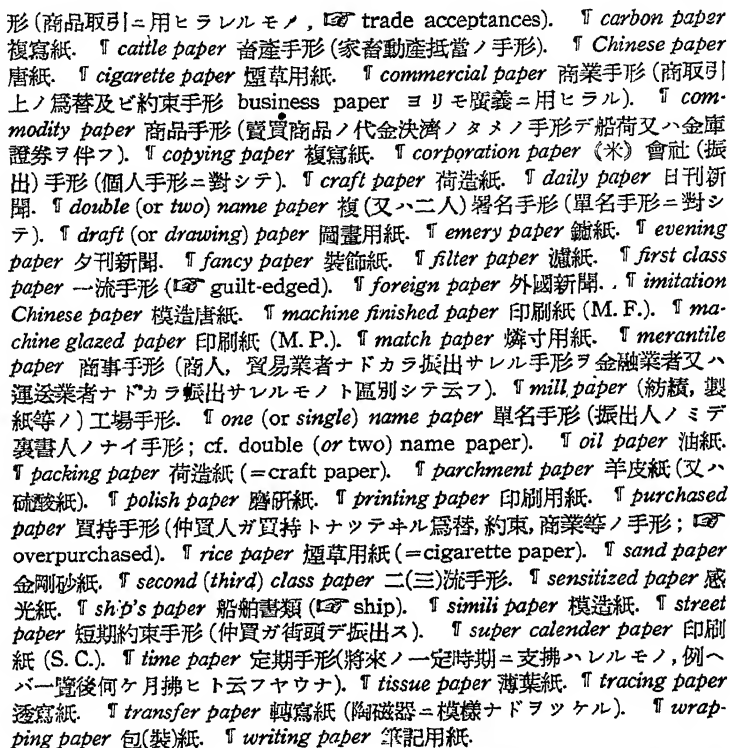 形 (商品取引ニ用ヒラレルモノ, ☞ trade acceptances). ¶ carbon paper
複寫紙. ¶ cattle paper 畜產手形 (家畜動產抵當ノ手形). ¶ Chinese paper
唐紙. ¶ cigarette paper 煙草用紙. ¶ commercial paper 商業手形 (商取引
上ノ爲替及ビ約束手形 business paper ヨリモ廣義ニ用ヒラル). ¶ com-
modity paper 商品手形 (賣買商品ノ代金決濟ノタメノ手形デ船荷又ハ金庫
證券ヲ伴フ). ¶ copying paper 複寫紙. ¶ corporation paper 《米》會社 (振
出) 手形 (個人手形ニ對シテ). ¶ craft paper 荷造紙. ¶ daily paper 日刊新
聞. ¶ double (or two) name paper 複 (又ハ二人) 署名手形 (單名手形ニ對シ
テ). ¶ draft (or drawing) paper 圖畫用紙. ¶ emery paper 鑢紙. ¶ evening
paper 夕刊新聞. ¶ fancy paper 裝飾紙. ¶ filter paper 濾紙. ¶ first class
paper 一流手形 (☞ guilt-edged). ¶ foreign paper 外國新聞. ¶ imitation
Chinese paper 模造唐紙. ¶ machine finished paper 印刷紙 (M. F.). ¶ ma-
chine glazed paper 印刷紙 (M. P.). ¶ match paper 燐寸用紙. ¶ merantile
paper 商事手形 (商人, 貿易業者ナドカラ振出サレル手形ヲ金融業者又ハ
運送業者ナドカラ振出サレルモノト區別シテ云フ). ¶ mill paper (紡績, 製
紙等ノ) 工場手形. ¶ one (or single) name paper 單名手形 (振出人ノミデ
裏書人ノナイ手形; cf. double (or two) name paper). ¶ oil paper 油紙.
¶ packing paper 荷造紙 (=craft paper). ¶ parchment paper 羊皮紙 (又ハ
硫酸紙). ¶ polish paper 磨硏紙. ¶ printing paper 印刷用紙. ¶ purchased
paper 買持手形 (仲買人ガ買持トナツテヰル爲替, 約束, 商業等ノ手形; ☞
overpurchased). ¶ rice paper 煙草用紙 (=cigarette paper). ¶ sand paper
金剛砂紙. ¶ second (third) class paper 二(三)流手形. ¶ sensitized paper 感
光紙. ¶ ship's paper 船舶書類 (☞ ship). ¶ simili paper 模造紙. ¶ street
paper 短期約束手形 (仲買ガ街頭デ振出ス). ¶ super calender paper 印刷
紙 (S. C.). ¶ time paper 定期手形(將來ノ一定時期ニ支拂ハレルモノ, 例ヘ
バ一覽後何ケ月拂ヒト云フヤウナ). ¶ tissue paper 薄葉紙. ¶ tracing paper
透寫紙. ¶ transfer paper 轉寫紙 (陶磁器ニ模樣ナドヲツケル). ¶ wrap-
ping paper 包(裝)紙. ¶ writing paper 筆記用紙.